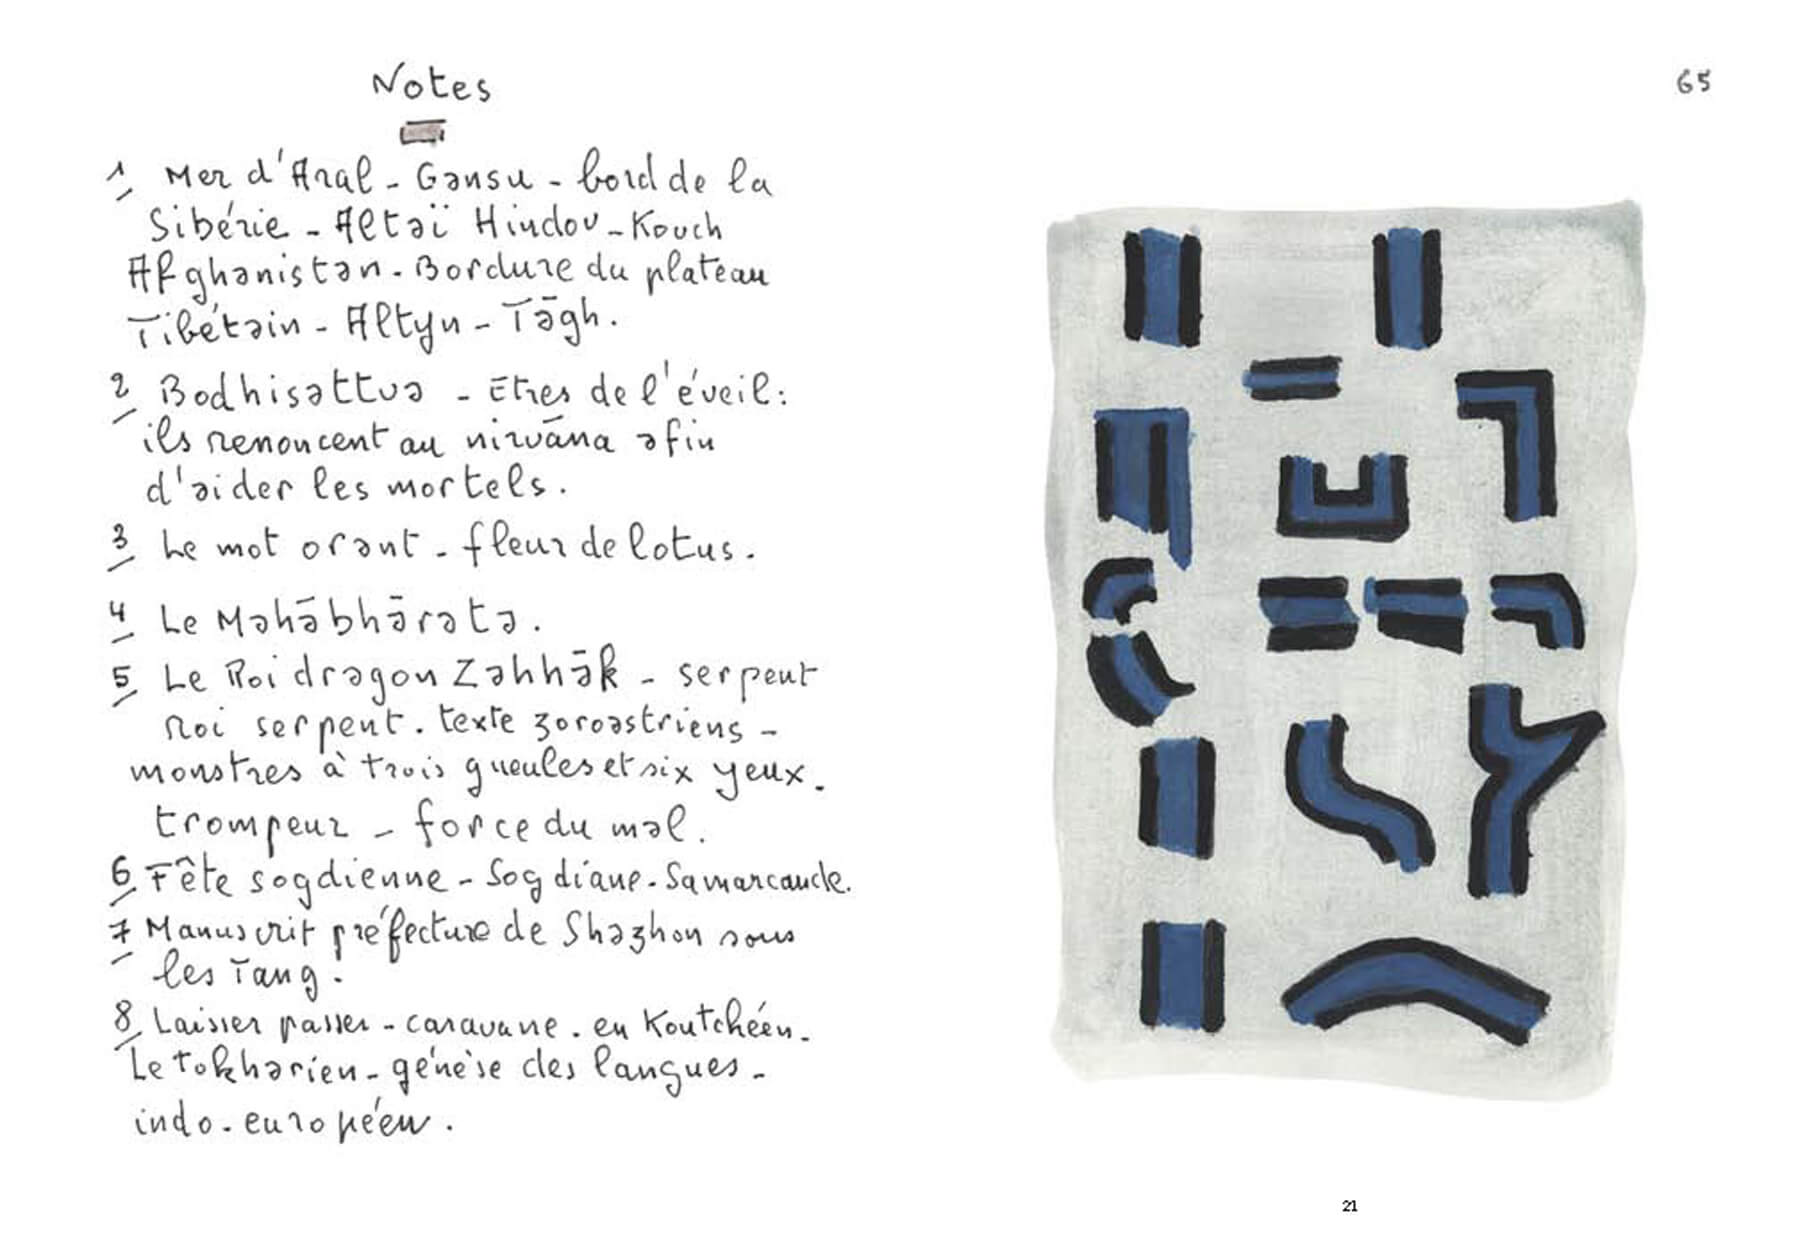 Notes
65
1 Mer d'Aral - Gansu - bord de la
Sibérie - Altaï Hindou - Kouch
Afghanistan - Bordure du plateau
Tibétain - Altyn - Tāgh.
2 Bodhisattva - Etres de l'éveil :
ils renoncent au nirvāna afin
d'aider les mortels.
3 Le mot orant - fleur de lotus.
4 Le Mahābhārata.
5 Le Roi dragon Zahhāk - serpent
roi serpent. texte zoroastriens -
monstres à trois gueules et six yeux.
trompeur - force du mal.
6 Fête sogdienne - Sogdiane - Samarcande.
7 Manuscrit préfecture de Shazhon sous
les Tang.
8 Laisser passer - caravane. en Koutchéen.
Le tokharien - génèse des langues -
indo. européen.
21